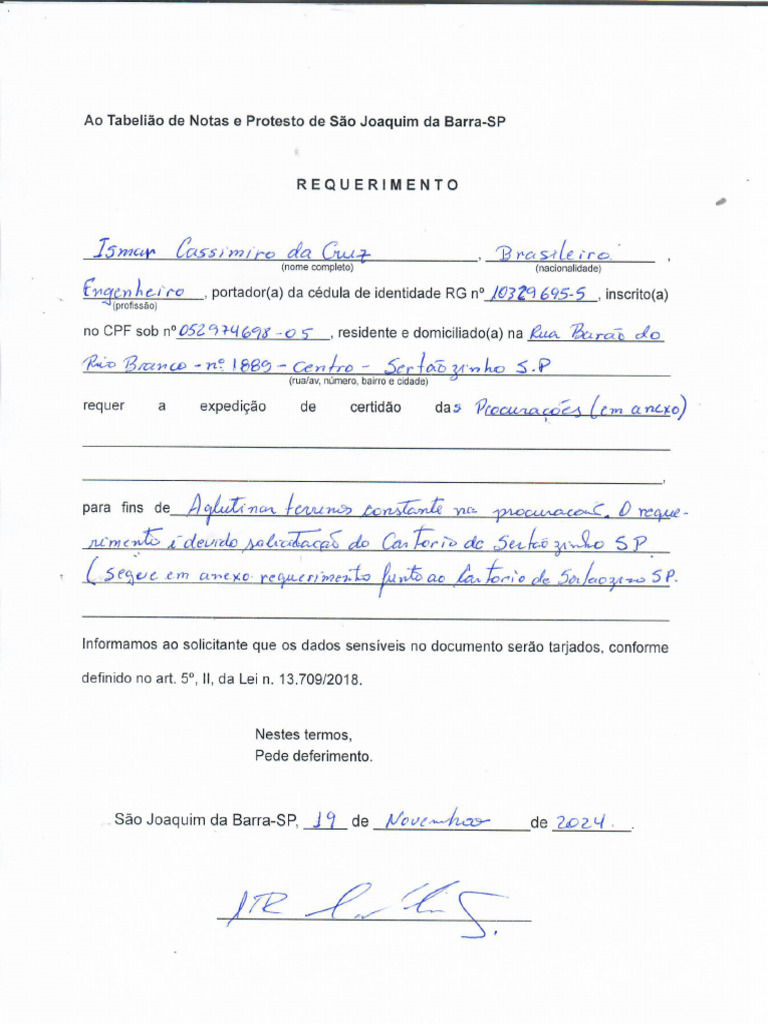 Ao Tabelião de Notas e Protesto de São Joaquim da Barra-SP
REQUERIMENTO
Ismar Cassimiro da Cruz, Brasileiro,
(nome completo) (nacionalidade)
Engenheiro, portador(a) da cédula de identidade RG nº 10329695-5, inscrito(a)
(profissão)
no CPF sob nº 052974698-05, residente e domiciliado(a) na Rua Barão do
Rio Branco - nº 1889 - Centro - Sertãozinho S.P
(rua/av, número, bairro e cidade)
requer a expedição de certidão das Procurações (em anexo)
,
para fins de Aglutinar terrenos constante na procuracoes. O reque-
rimento é devido solicitação do Cartorio de Sertãozinho SP
(segue em anexo requerimento junto ao Cartorio de Sertaozino SP.
Informamos ao solicitante que os dados sensíveis no documento serão tarjados, conforme
definido no art. 5º, II, da Lei n. 13.709/2018.
Nestes termos,
Pede deferimento.
São Joaquim da Barra-SP, 19 de Novembro de 2024.